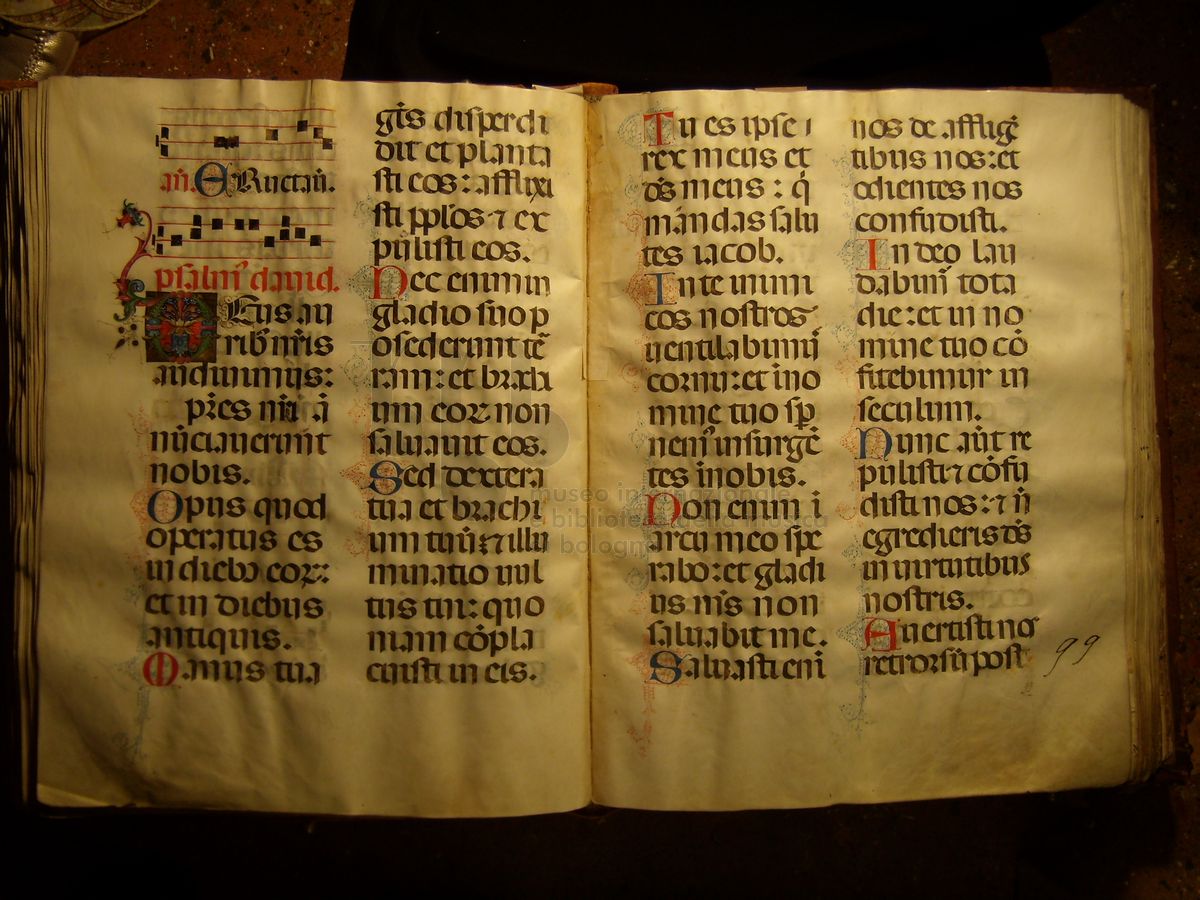 añ. ERuctañ.
psalmꝰ dauid.
DEus au
ribꝰ nr̄is
audiuimus:
pr̄es nr̄i ā
nūciauerunt
nobis.
Opus quod
operatus es
in diebꝰ eoꝝ:
et in diebus
antiquis.
Manus tua
gētes disperdi
dit et planta
sti eos: afflixi
sti pp̄los ⁊ ex
pulisti eos.
Nec enim in
gladio suo p
osederunt tē
ram: et brachi
um eoꝝ non
saluauit eos.
Sed dextera
tua et brachi
um tuū: ⁊ illu
minatio uul
tus tui: quo
niam cōpla
cuisti in eis.
Tu es ipse
rex meus et
dꝰs meus: q̇
mandas salu
tes iacob.
In te inimi
cos nostros
uentilabimꝰ
cornu: et ī no
mine tuo sꝑ
nemꝰ insurgē
tes ī nobis.
Non enim ī
arcu meo spe
rabo: et gladi
us mꝰs non
saluabit me.
Saluasti enī
nos de affligē
tibus nos: et
odientes nos
confudisti.
In deo lau
dabimꝰ tota
die: et in no
mine tuo cō
fitebimur in
seculum.
Nunc aūt re
pulisti ⁊ cōfu
disti nos: ⁊ n̄
egredieris dꝰs
in uirtutibus
nostris.
Auertisti nos
retrorsū post
99
museo internazionale
e biblioteca della musica
bologna